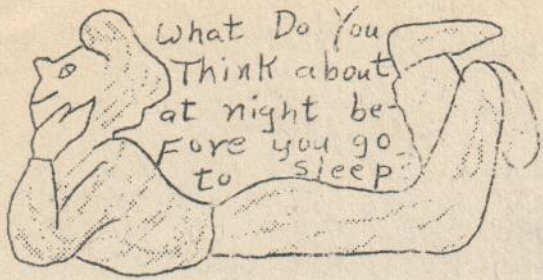 What Do You
Think about
at night be-
Fore you go
to sleep